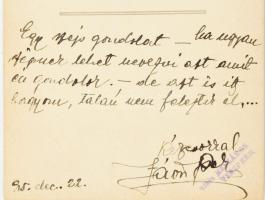 Egy szép gondolat — ha ugyan
szépnek lehet nevezni azt amit
én gondolok. — de azt is itt
hagyom, talán nem felejtik el, ...
Kézcsókkal
95. dec. 22.